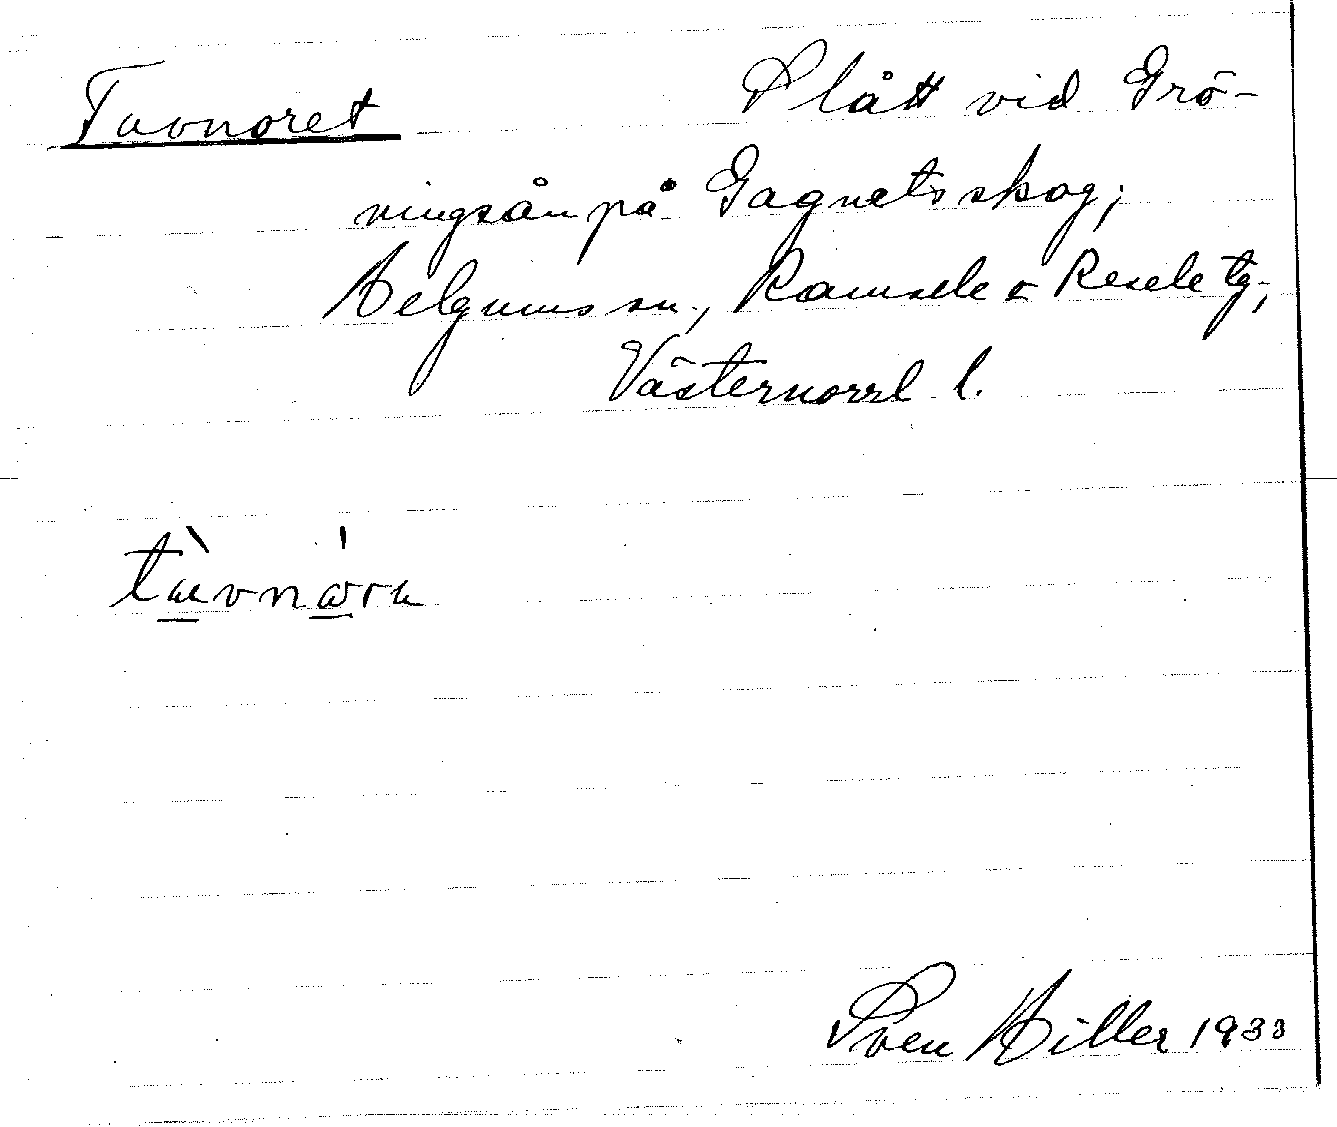 Tavnoret
Slått vid Grö-
ningsån på Gagnets skog;
Helgums sn., Ramsele o Resele tg.,
Västernorrl l.
tàvnǻra
Sven Hiller 1933